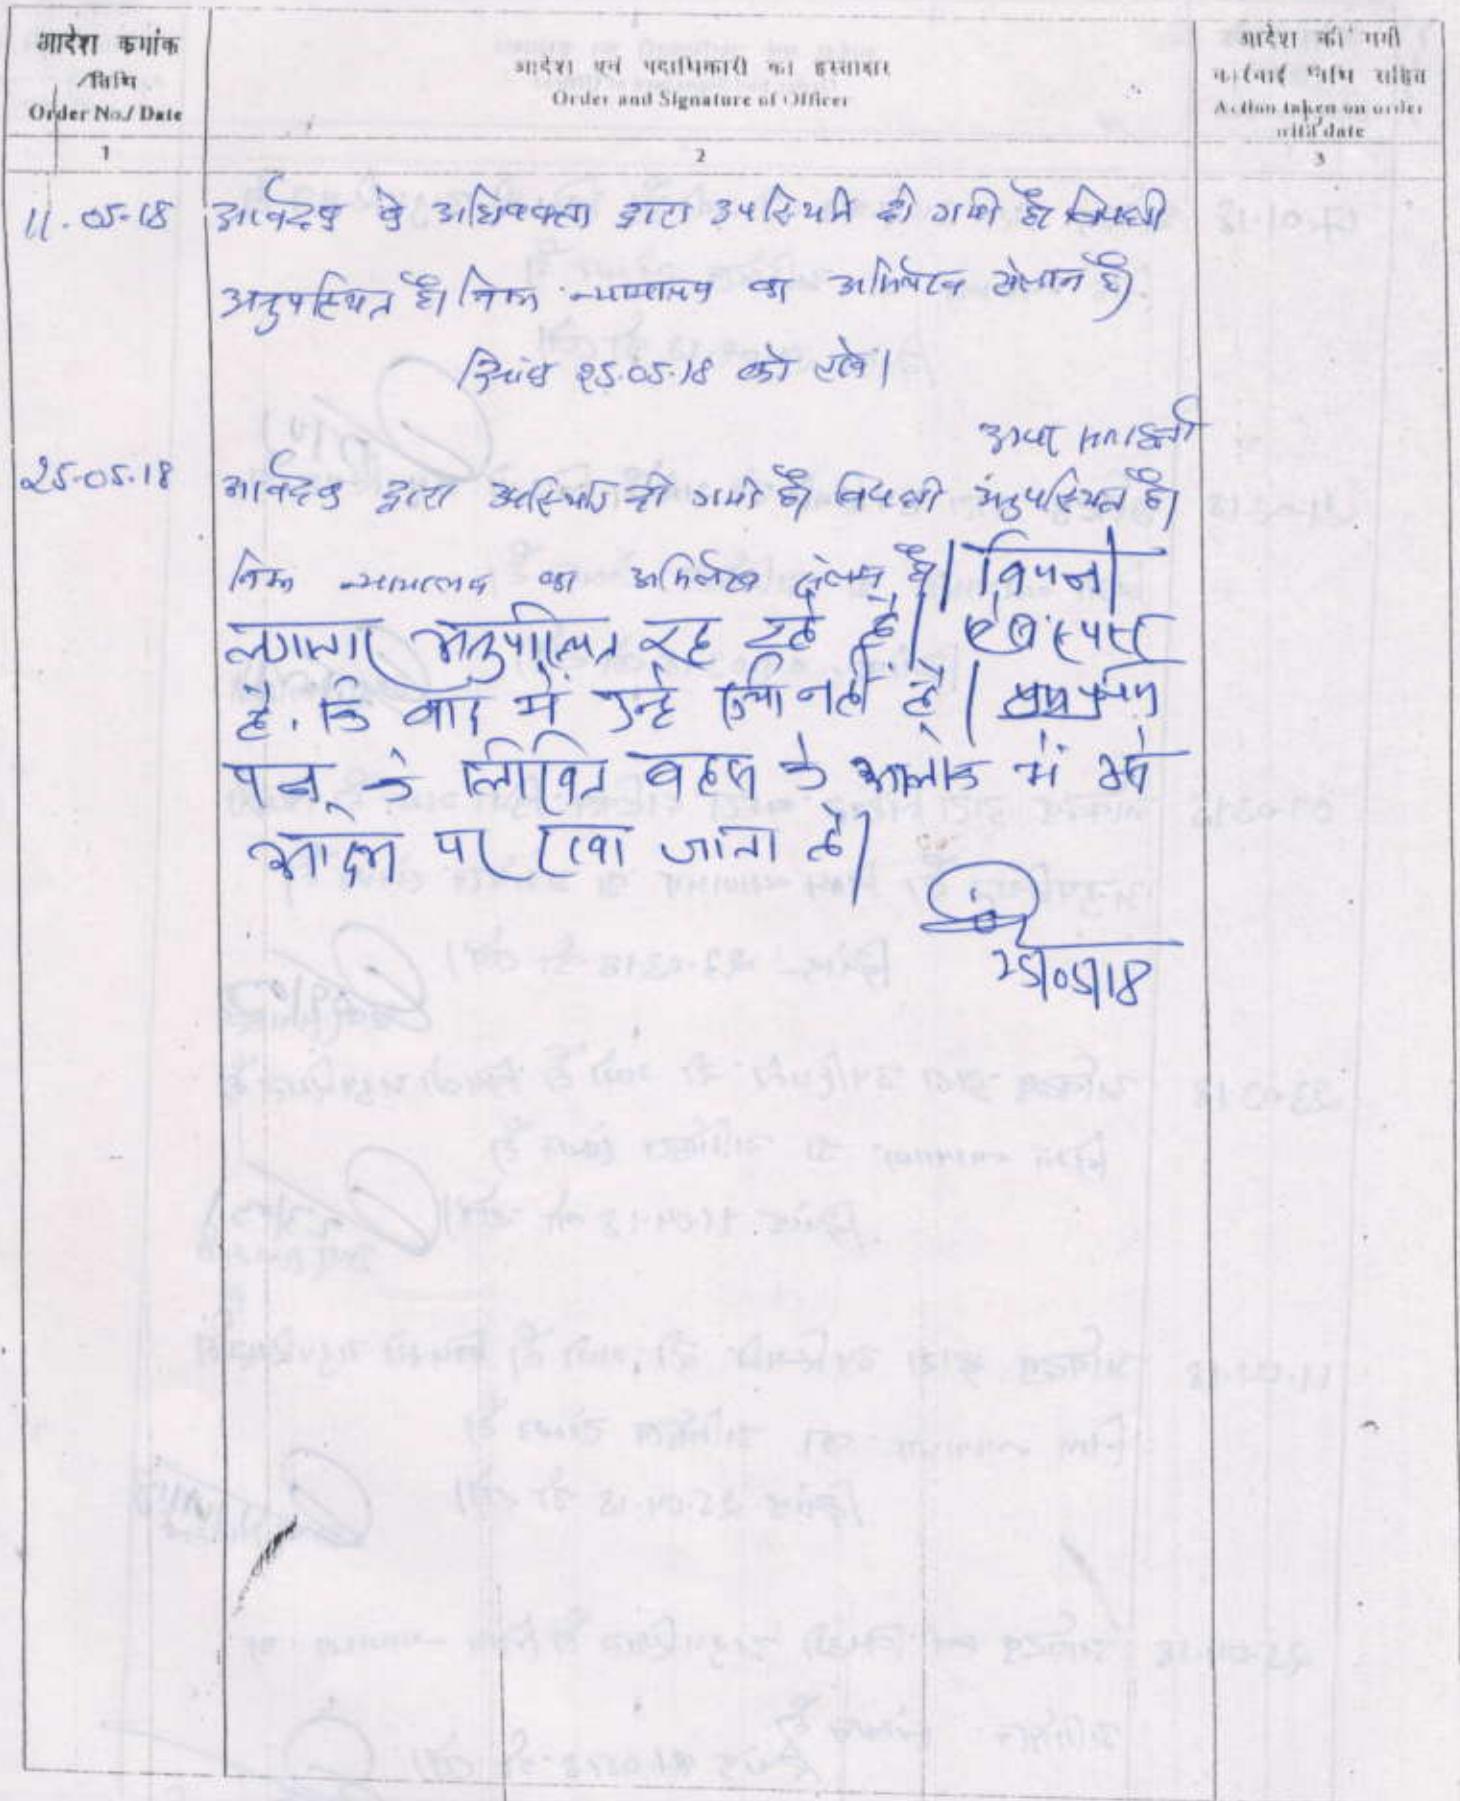 आदेश कमांक
/तिथि
Order No./ Date
आदेश एवं पदाधिकारी का हस्ताक्षर
Order and Signature of Officer
आदेश की गयी
कार्रवाई तिथि सहित
Action taken on order
with date
1
2
3
11.05.18 आवेदक के अधिवक्ता द्वारा उपस्थिति दी गयी है। विपक्षी
अनुपस्थित है। निम्न न्यायालय का अभिलेख संलग्न है।
दिनांक 25.05.18 को रखें।
अपर समाहर्ता
25.05.18 आवेदक द्वारा उपस्थिति दी गयी है। विपक्षी अनुपस्थित है।
निम्न न्यायालय का अभिलेख संलग्न है। विपक्षी
लगातार अनुपस्थित रह रहे हैं। स्पष्ट
है कि वाद में उन्हें रूचि नहीं है।
पक्ष के लिखित बहस के आलोक में
आदेश पर रखा जाता है।
25/05/18